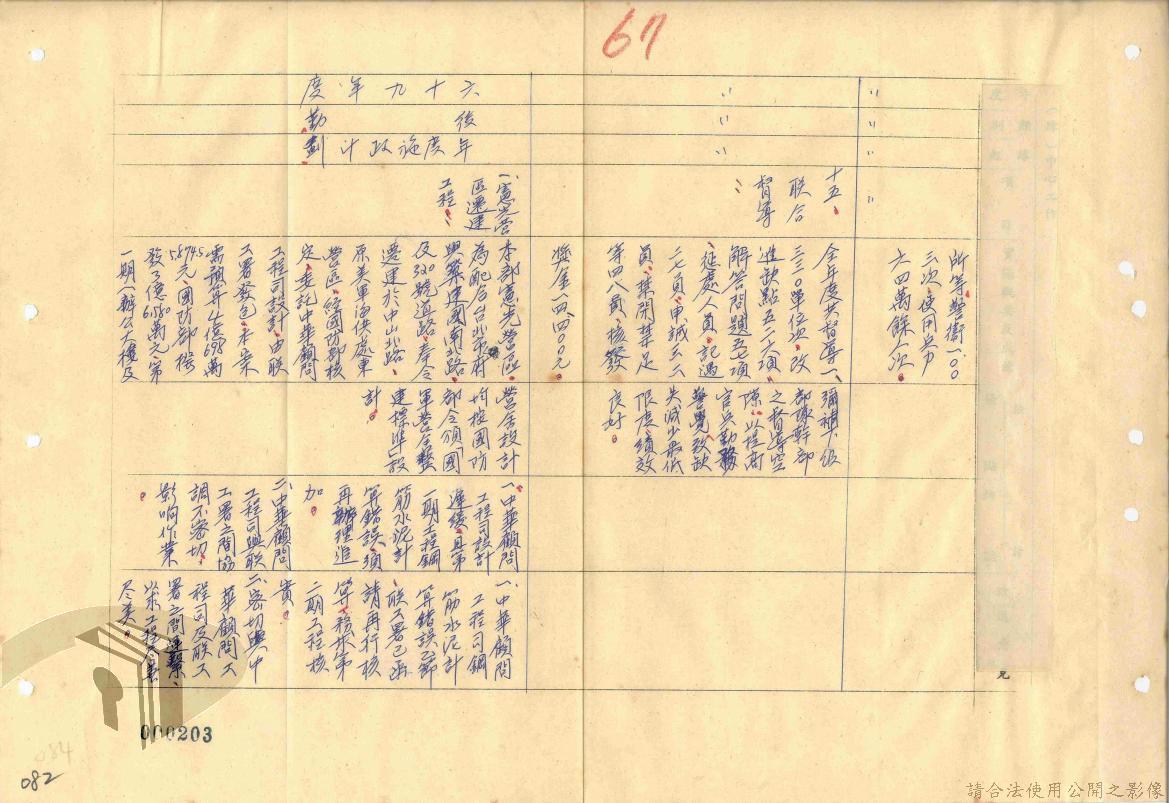 67
〃
〃
〃
〃
所等警衛一〇〇
三次、使用兵力
六四萬餘人次。
〃
〃
〃
十五、
联合
督導
全年度共督導
三三〇單位、改
進缺點五二六項、
解答問題五七項
、懲處人員、記過
二七員、申誡三三
員、禁閉禁足
等四八員、核發
獎金一四四〇〇元。
一、彌補下級
部隊幹部
之督導空
隙、以提高
官兵勤務
警覺、致缺
失減少最低
限度、績效
良好。
六十九年度
後勤
年度施政計劃
一、憲光營
區遷建
工程。
本部憲光營區、
為配合台北市府
興築建國南北路
及320號道路、奉令
遷建於中山北路
原美軍海供處東
營區、經國防部核
定、委託中華顧問
工程司設計、由联
工署發包、本案
需預算4億698萬
58745元、國防部撥
發7億6180萬元、第
一期、辦公大樓及
營舍設計
均按國防
部令頒國
軍營舍整
建標準設
計。
一、中華顧問
工程司設計
遲緩、且第
一期工程鋼
筋水泥計
算錯誤、須
再辦理追
加。
二、中華顧問
工程司與联
工署之間協
調不密切、
影响作業
。
一、中華顧問
工程司鋼
筋水泥計
算錯誤乙節
、联工署已函
請再行核
算、務求第
二期工程核
實。
二、密切與中
華顧問工
程司及联工
署之間連繫、
以求工程盡善
尽美。
000203
084
082
請合法使用公開之影像